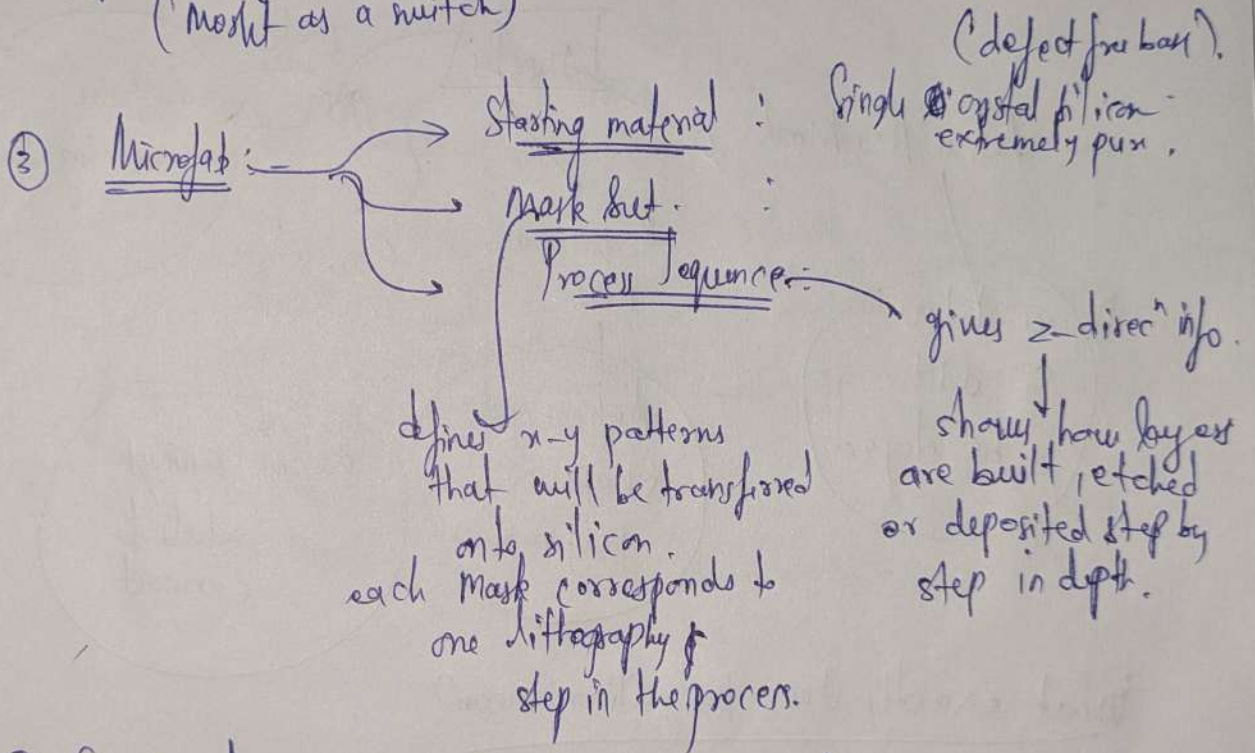 (Mosfet as a switch)
(defect free base).
③ Microfab :-
Starting material : Single crystal silicon
extremely pure.
Mask Set. :
Process Sequence :-
gives z-direcⁿ info.
defines x-y patterns
that will be transferred
onto silicon.
each Mask corresponds to
one lithography
step in the process.
shows how layers
are built, etched
or deposited step by
step in depth.